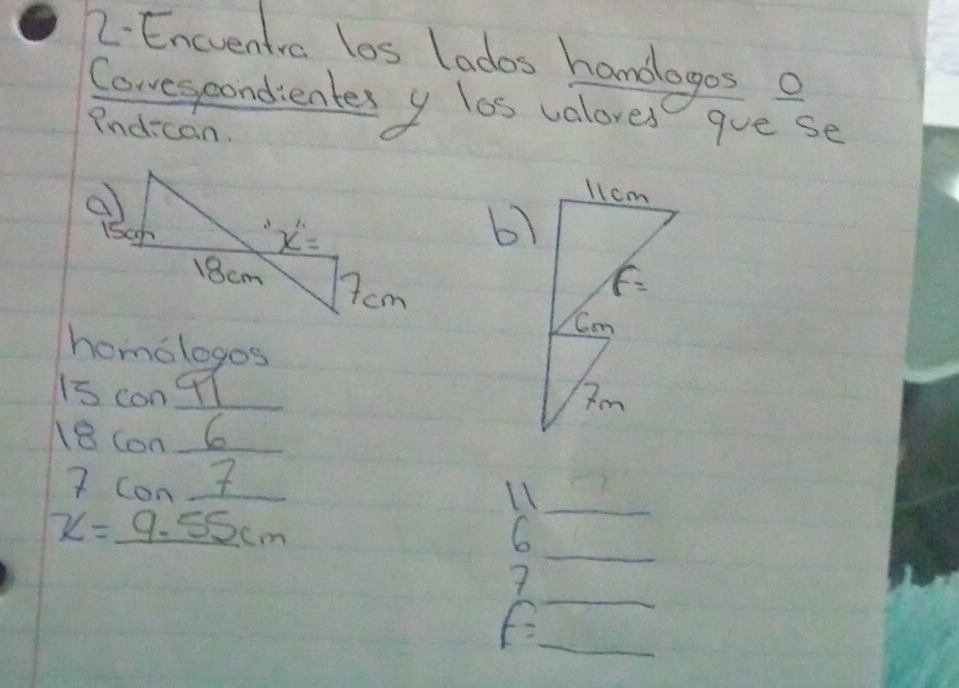 2-Encuentra los lados homólogos o
Correspondientes y los valores que se
indican.
a)
15cm
18cm
"x"=
7cm
b)
11cm
f=
6m
7m
homólogos
15 con 11
18 con 6
7 con 7
x= 9.55cm
11
6
7
f=